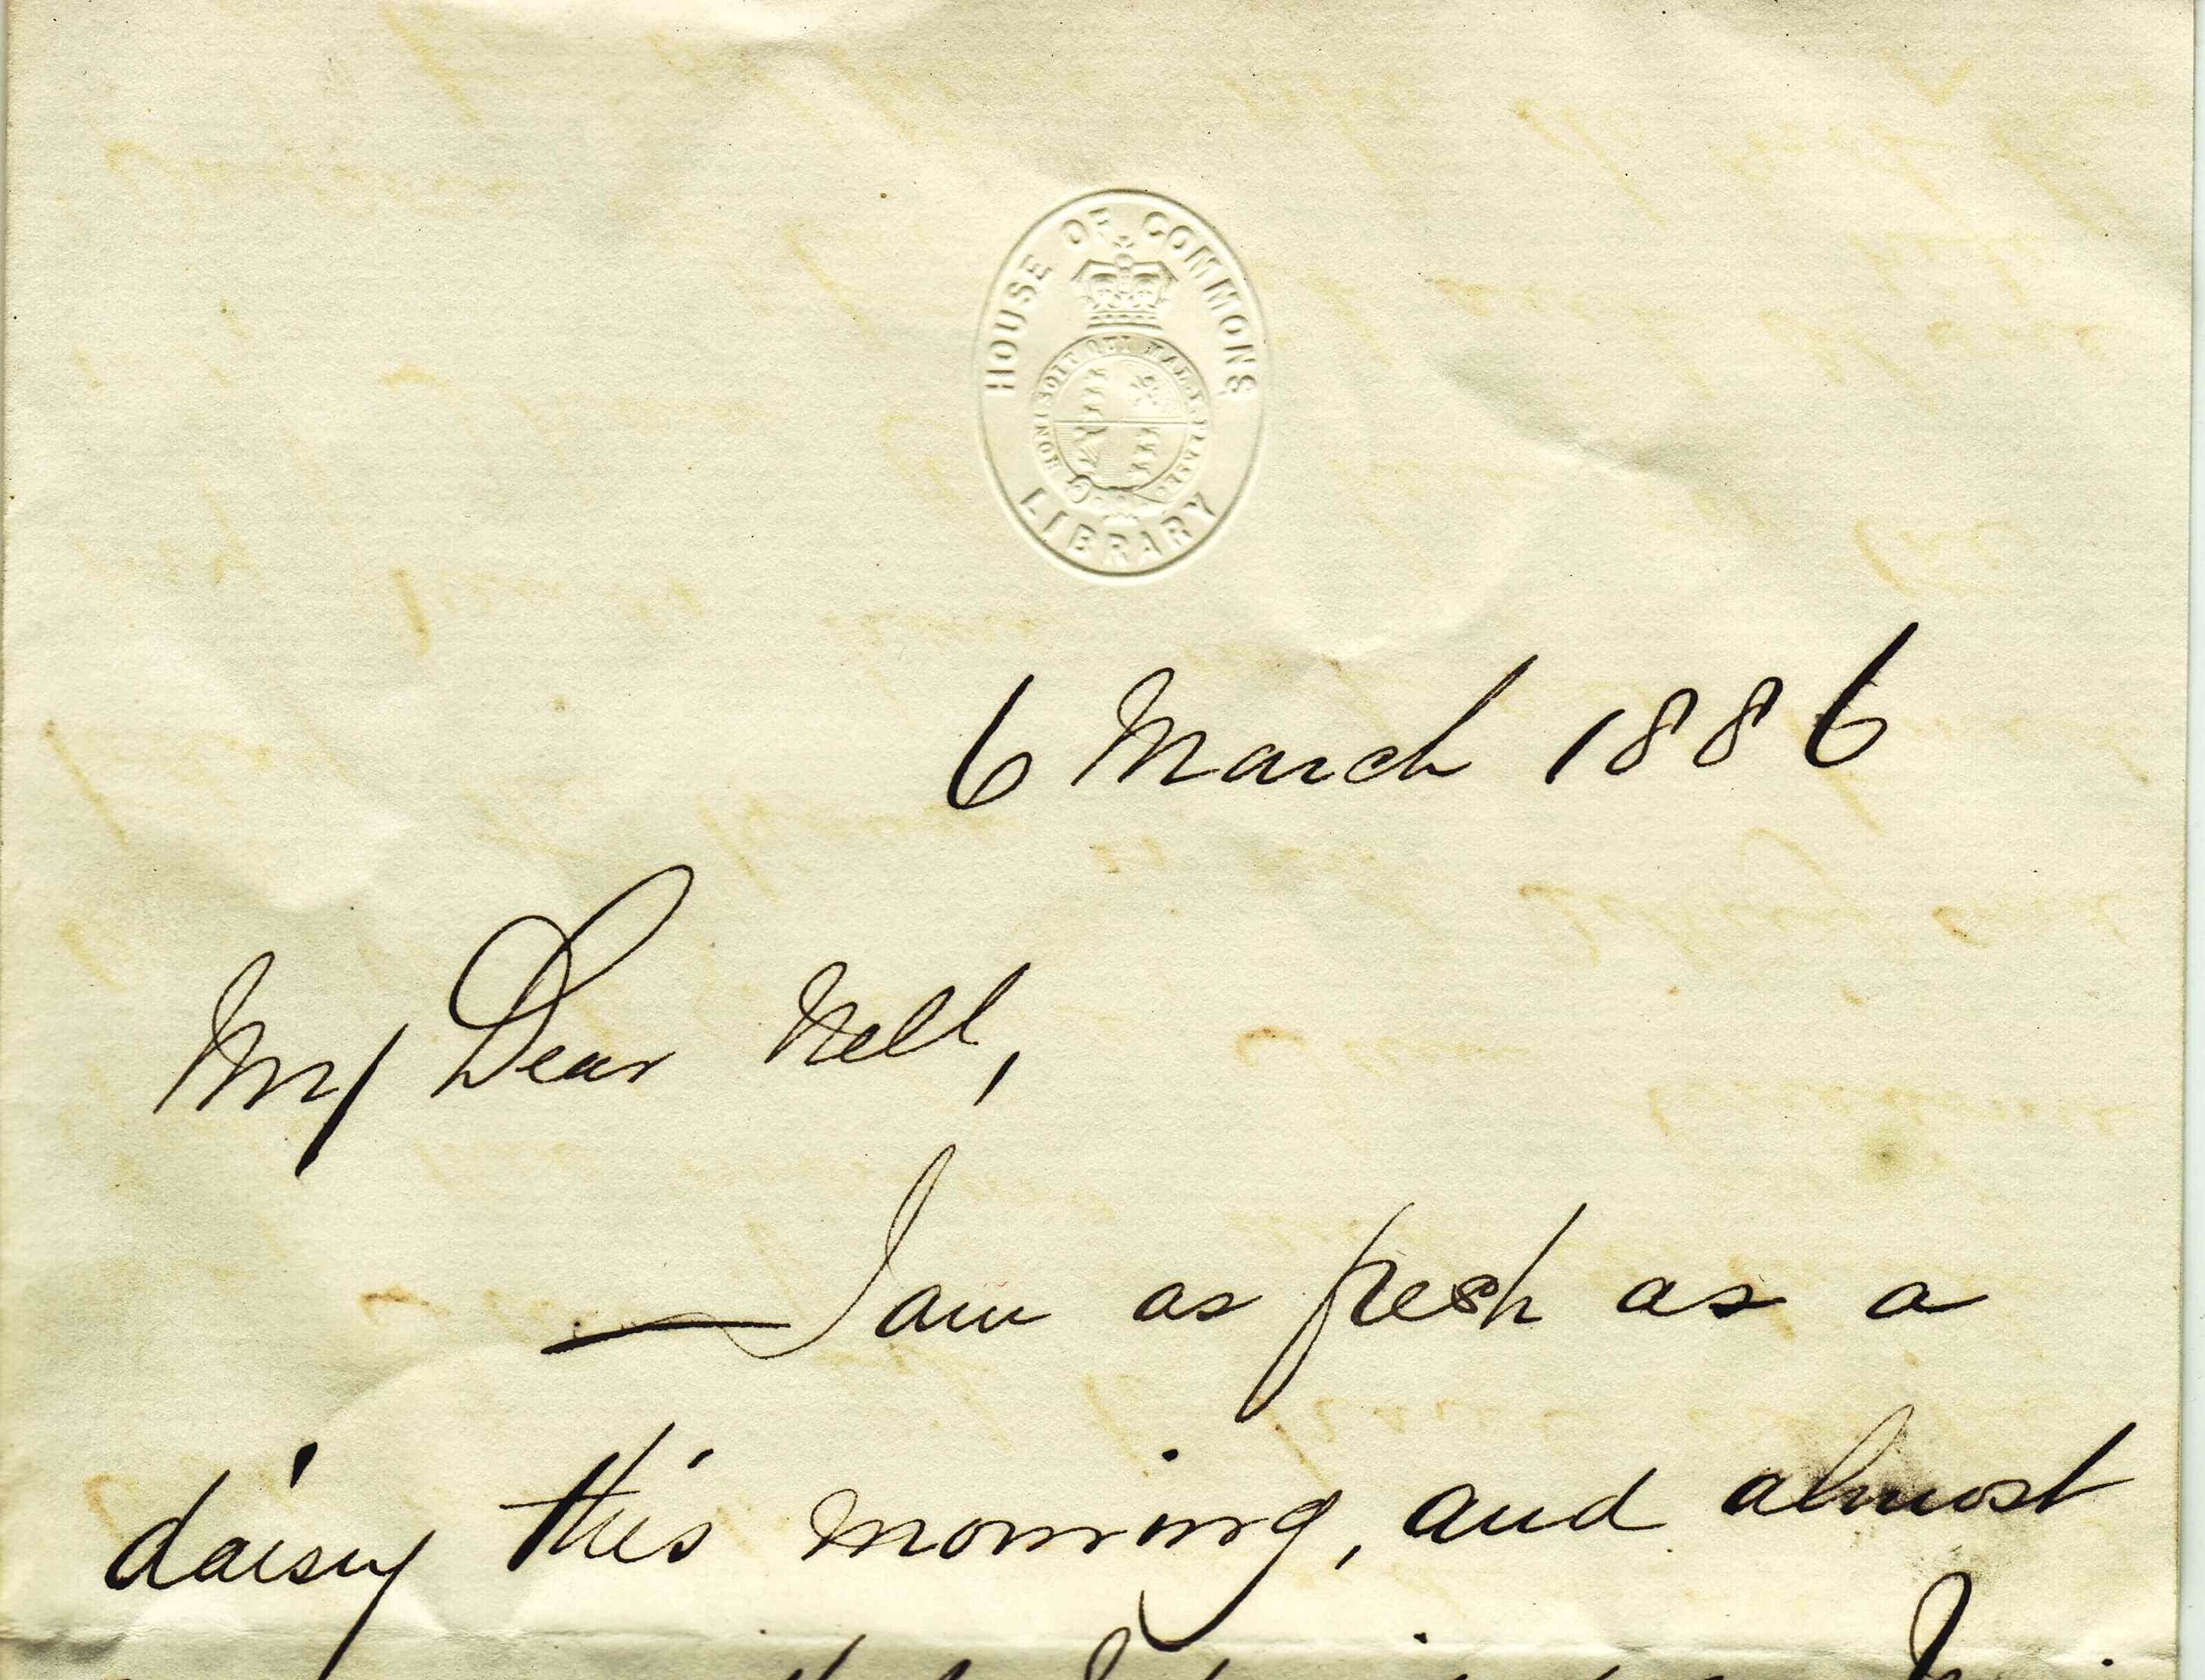 HOUSE OF COMMONS
HONI SOIT QUI MAL Y PENSE
LIBRARY
6 March 1886
My Dear Nell,
I am as fresh as a
daisy this morning, and almost